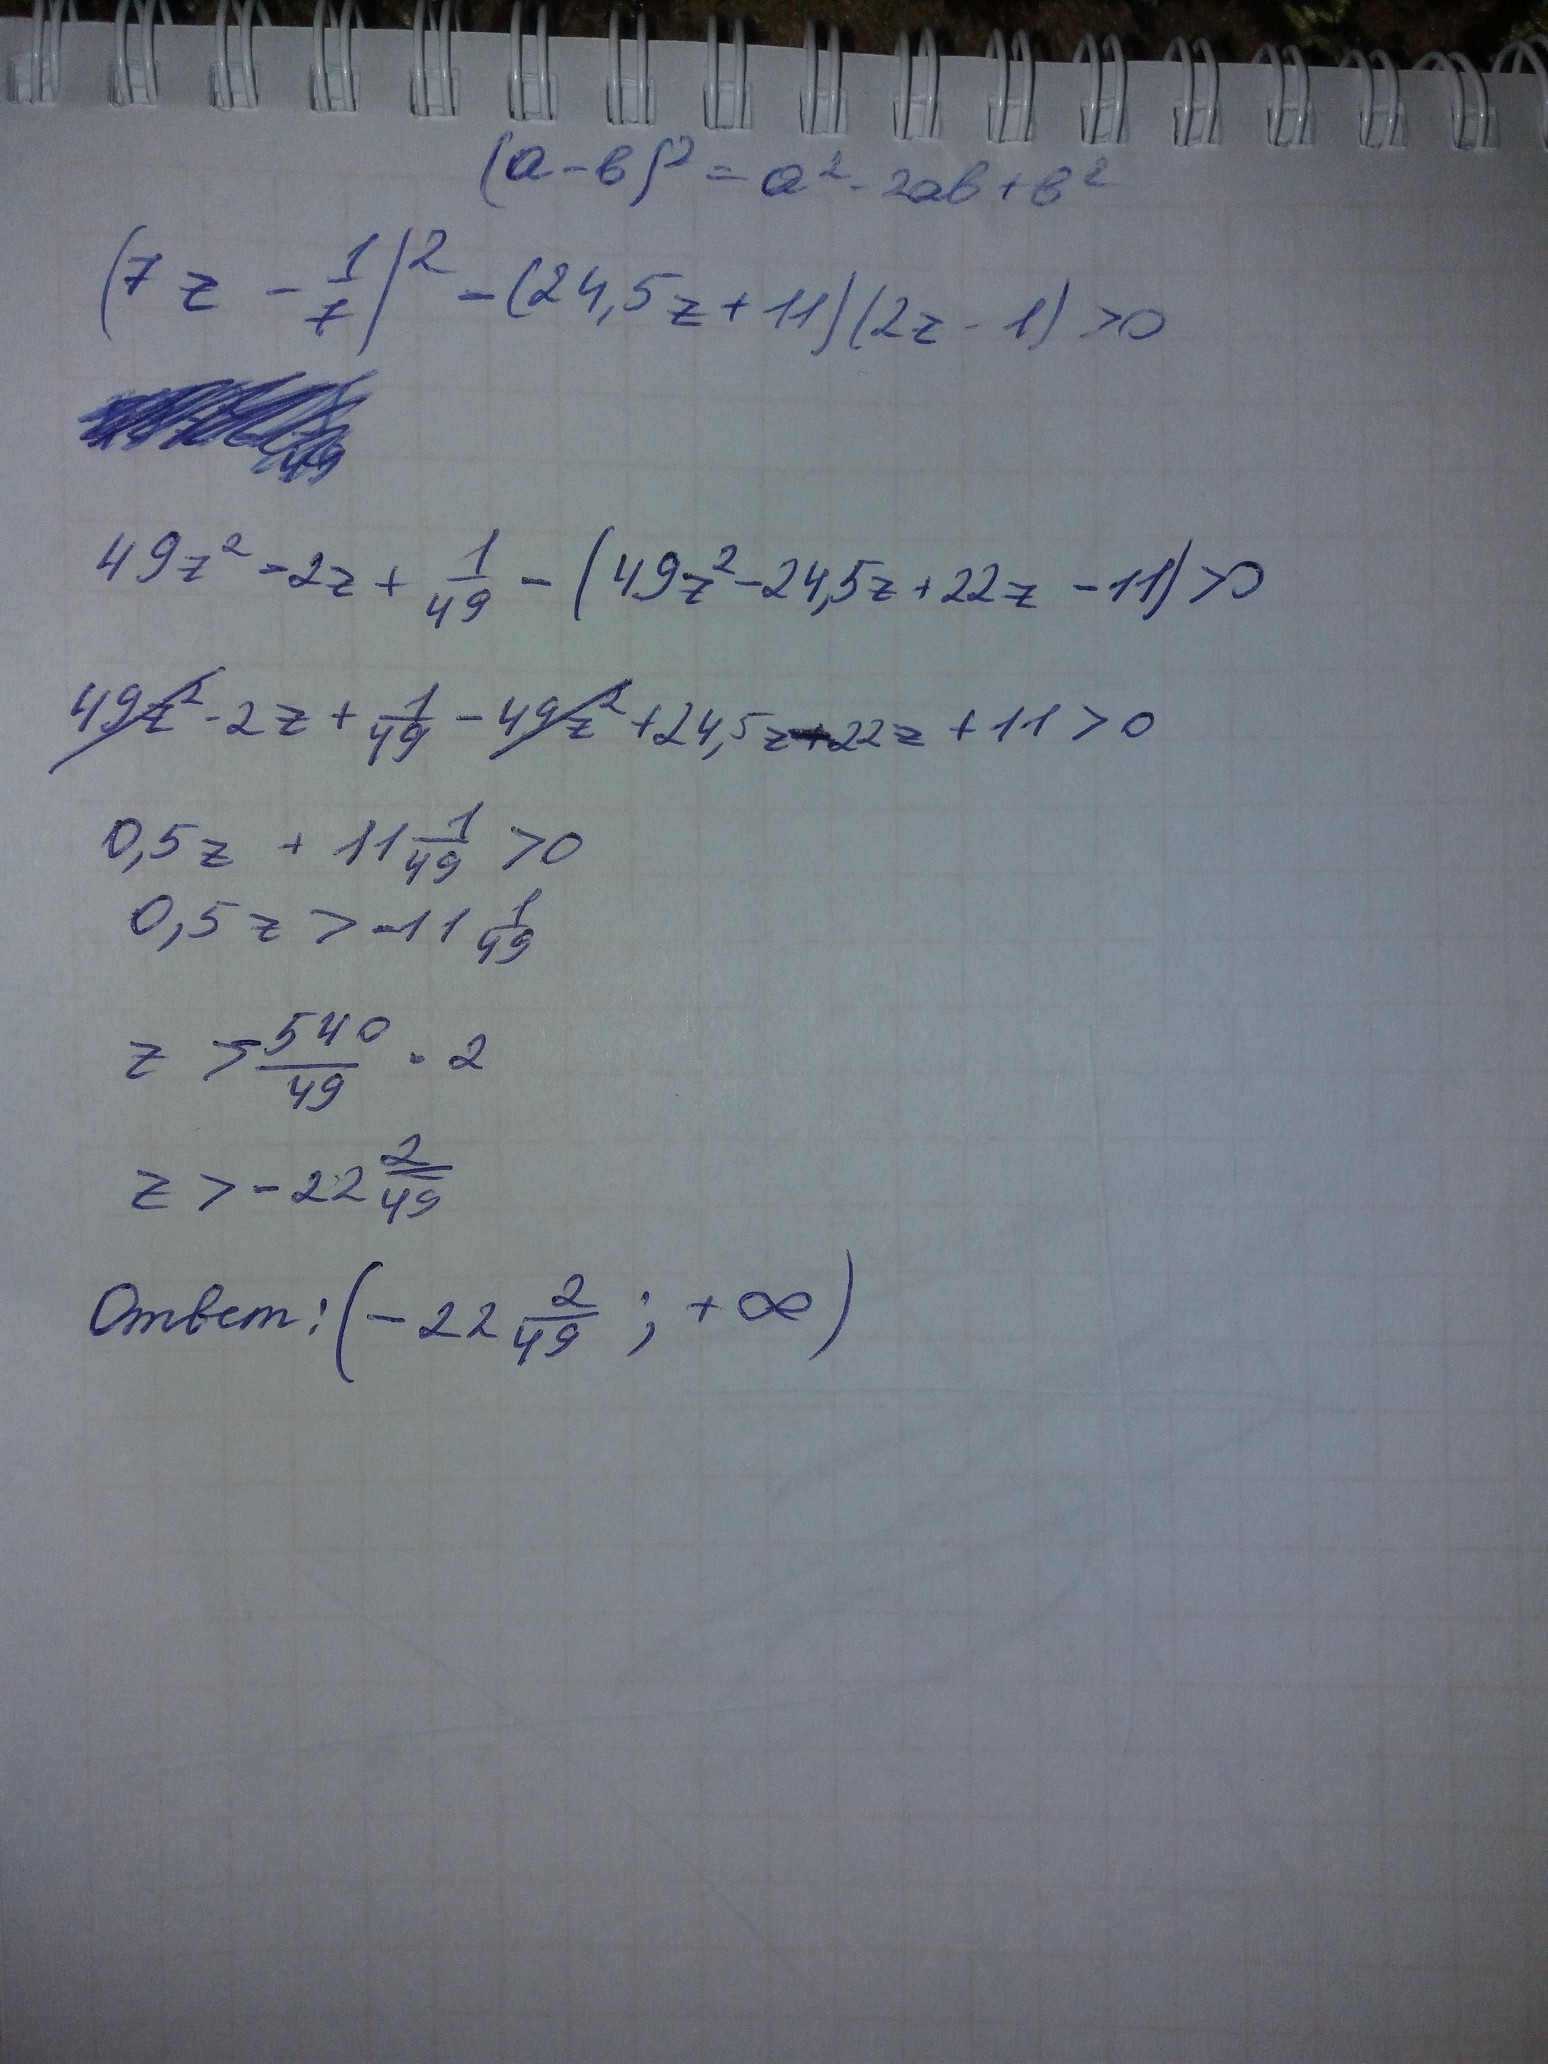 (a-в)² = a² - 2aв + в²
(7z - 1/7)² - (24,5z + 11)(2z - 1) > 0
49z² - 2z + 1/49 - (49z² - 24,5z + 22z - 11) > 0
49z² - 2z + 1/49 - 49z² + 24,5z - 22z + 11 > 0
0,5z + 11 1/49 > 0
0,5z > -11 1/49
z > -540/49 · 2
z > -22 2/49
Ответ: (-22 2/49 ; +∞)